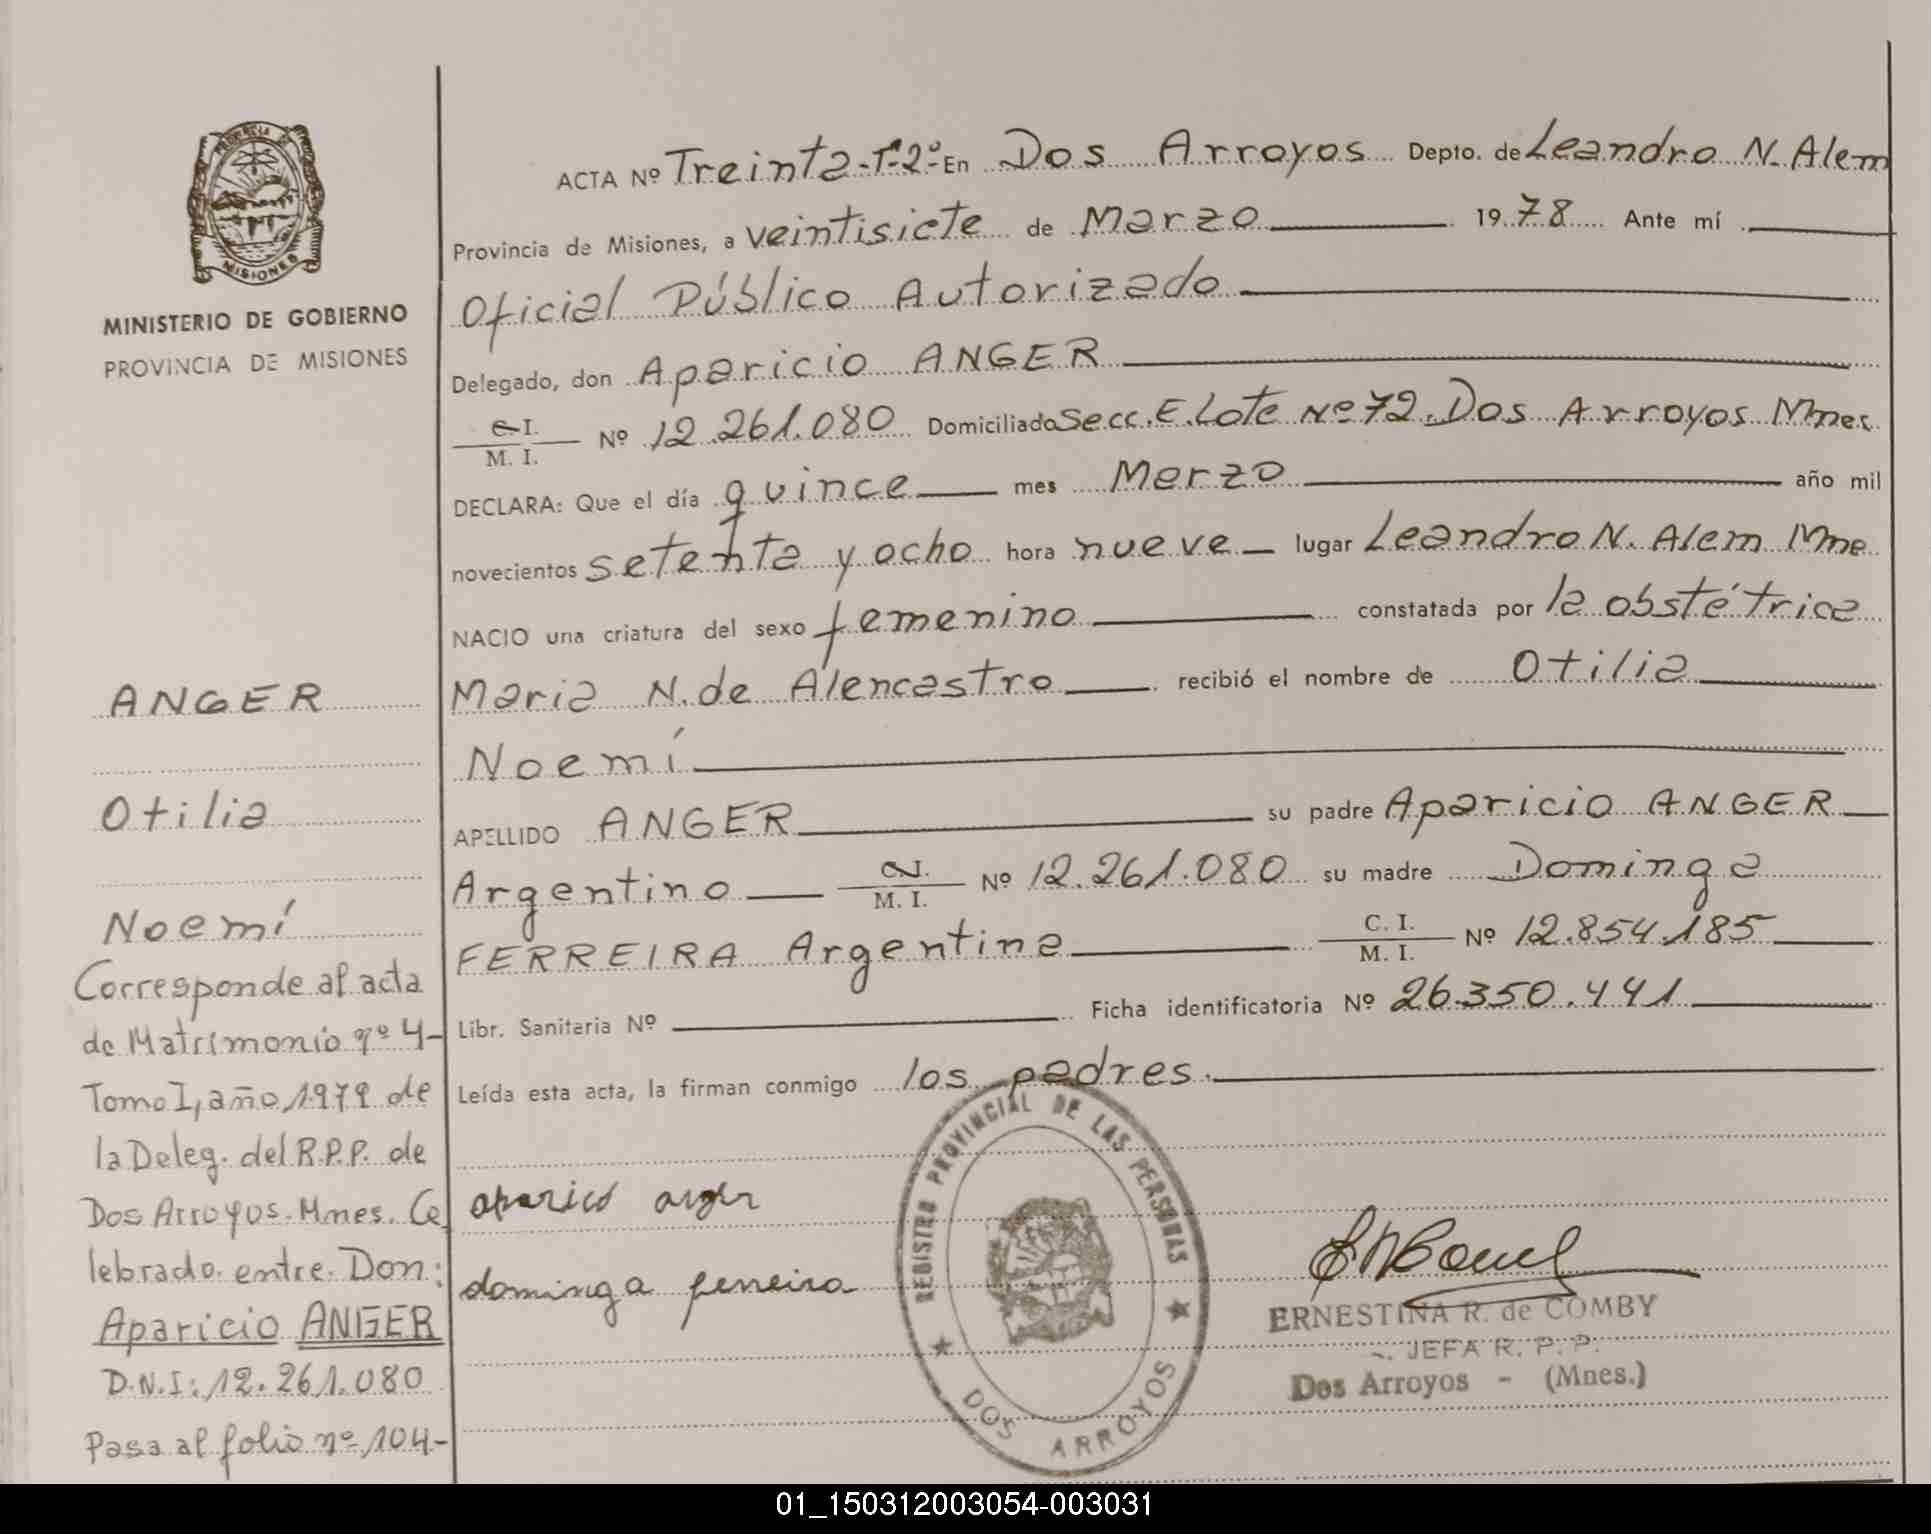 PROVINCIA DE
MISIONES
MINISTERIO DE GOBIERNO
PROVINCIA DE MISIONES
ANGER
Otilia
Noemí
Corresponde al acta
de Matrimonio nº 4-
Tomo I, año 1979 de
la Deleg. del R.P.P. de
Dos Arroyos. Mnes. Ce
lebrado entre Don:
Aparicio ANGER
D.N.I: 12.261.080
Pasa al folio nº 104-
ACTA Nº Treinta-Tº2º- En Dos Arroyos Depto. de Leandro N. Alem
Provincia de Misiones, a veintisiete de Marzo 1978 Ante mí
Oficial Público Autorizado
Delegado, don Aparicio ANGER
C.I.
M. I. Nº 12.261.080 Domiciliado Secc. E. Lote Nº 72. Dos Arroyos Mnes.
DECLARA: Que el día quince mes Marzo año mil
novecientos setenta y ocho hora nueve lugar Leandro N. Alem Mne
NACIO una criatura del sexo femenino constatada por la obstétrica
Maria N. de Alencastro recibió el nombre de Otilia
Noemí
APELLIDO ANGER su padre Aparicio ANGER
Argentino C.I.
M. I. Nº 12.261.080 su madre Dominga
FERREIRA Argentina C. I.
M. I. Nº 12.854.185
Libr. Sanitaria Nº Ficha identificatoria Nº 26.350.441
Leída esta acta, la firman conmigo los padres.
aparicio anger
dominga ferreira
REGISTRO PROVINCIAL DE LAS PERSONAS
DOS ARROYOS
ERNESTINA R. de COMBY
JEFA R. P. P.
Dos Arroyos - (Mnes.)
01_150312003054-003031